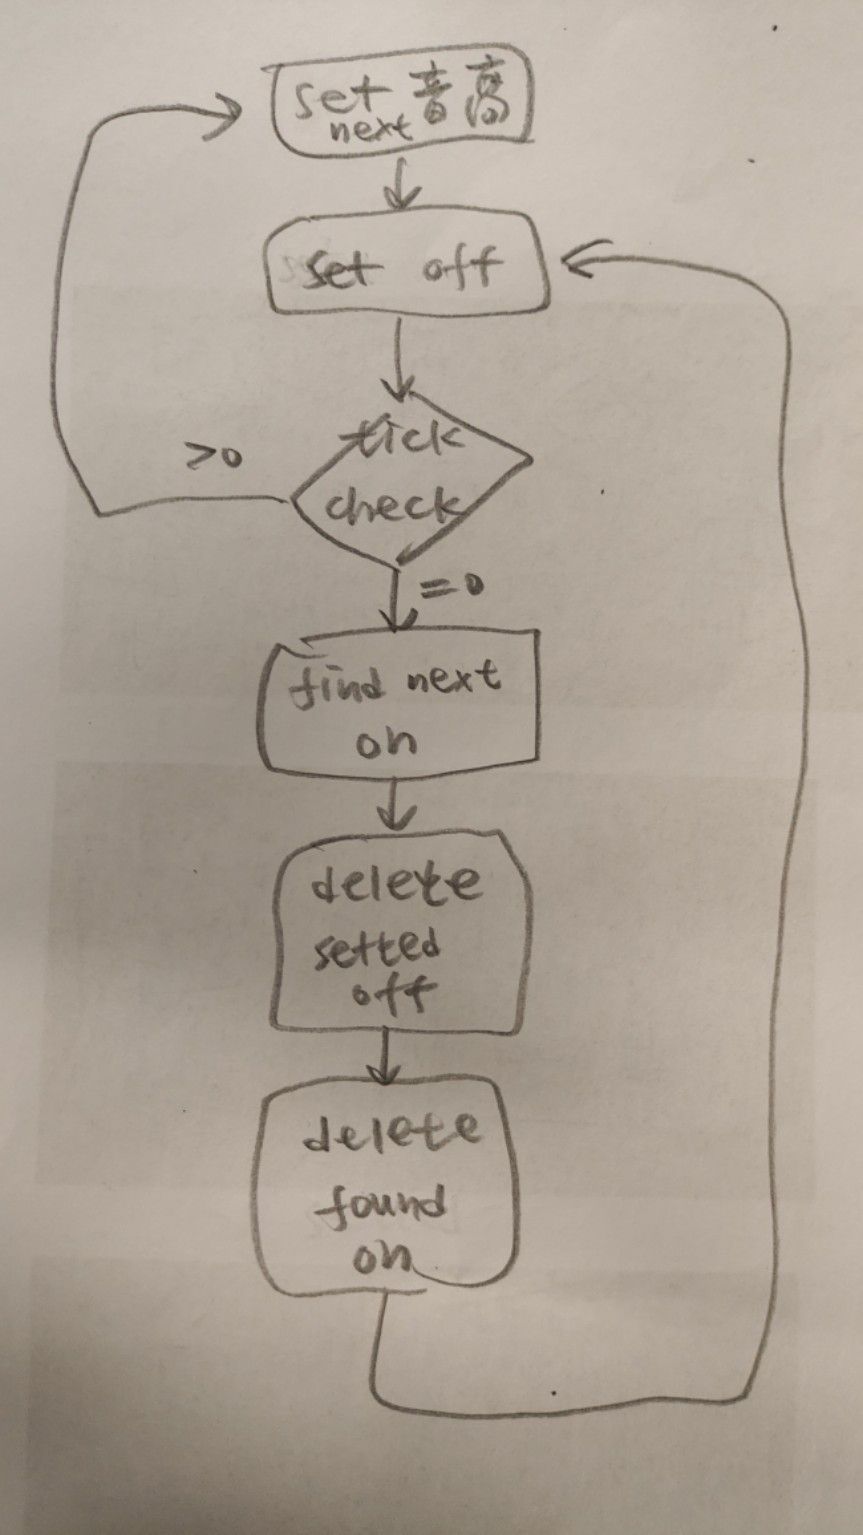 set 音高
next
set off
tick
check
>0
=0
find next
on
delete
setted
off
delete
found
on